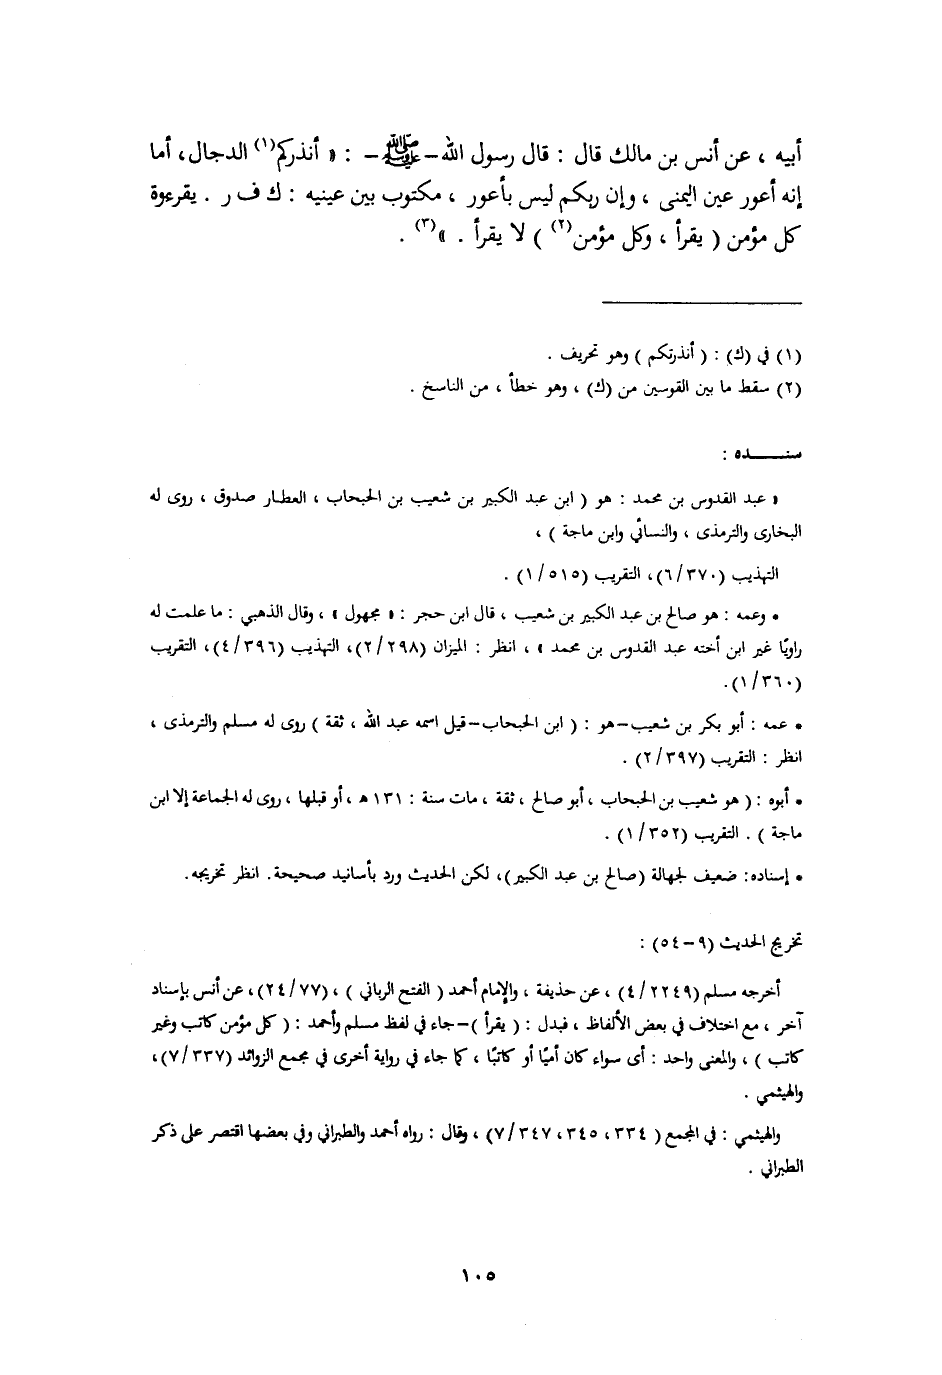 أبيه ، عن أنس بن مالك قال : قال رسول الله – ﷺ – : « أنذركم(١) الدجال، أما
إنه أعور عين اليمنى ، وإن ربكم ليس بأعور ، مكتوب بين عينيه : ك ف ر . يقرءوة
كل مؤمن ( يقرأ ، وكل مؤمن(٢) ) لا يقرأ . »(٣) .
(١) في (ك) : ( أنذرتكم ) وهو تحريف .
(٢) سقط ما بين القوسين من (ك) ، وهو خطأ ، من الناسخ .
سنـــــده :
« عبد القدوس بن محمد : هو ( ابن عبد الكبير بن شعيب بن الحبحاب ، العطار صدوق ، روى له
البخارى والترمذى ، والنسائي وابن ماجة ) ،
التهذيب (٦/٣٧٠)، التقريب (١/٥١٥) .
• وعمه : هو صالح بن عبد الكبير بن شعيب ، قال ابن حجر : « مجهول » ، وقال الذهبي : ما علمت له
راويًا غير ابن أخته عبد القدوس بن محمد » ، انظر : الميزان (٢/٢٩٨)، التهذيب (٤/٣٩٦)، التقريب
(١/٣٦٠).
• عمه : أبو بكر بن شعيب–هو : ( ابن الحبحاب–قيل اسمه عبد الله ، ثقة ) روى له مسلم والترمذى ،
انظر : التقريب (٢/٣٩٧) .
• أبوه : ( هو شعيب بن الحبحاب ، أبو صالح ، ثقة ، مات سنة : ١٣١ هـ ، أو قبلها ، روى له الجماعة إلا ابن
ماجة ) . التقريب (١/٣٥٢) .
• إسناده: ضعيف لجهالة (صالح بن عبد الكبير)، لكن الحديث ورد بأسانيد صحيحة. انظر تخريجه.
تخريج الحديث (٩–٥٤) :
أخرجه مسلم (٤/٢٢٤٩) ، عن حذيفة ، والإمام أحمد ( الفتح الرباني ) ، (٢٤/٧٧)، عن أنس بإسناد
آخر ، مع اختلاف في بعض الألفاظ ، فبدل : ( يقرأ )–جاء في لفظ مسلم وأحمد : ( كل مؤمن كاتب وغير
كاتب ) ، والمعنى واحد : أى سواء كان أميًا أو كاتبًا ، كما جاء في رواية أخرى في مجمع الزوائد (٧/٣٣٧)،
والهيثمي .
والهيثمي : في المجمع ( ٣٣٤، ٣٤٥، ٧/٣٤٧) ، وقال : رواه أحمد والطبراني وفي بعضها اقتصر على ذكر
الطبراني .
١٠٥